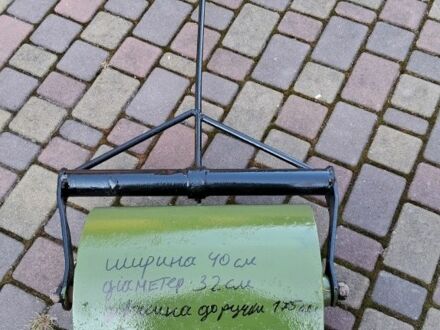 ширина 40 см
диаметер 32 см
до ручки 175